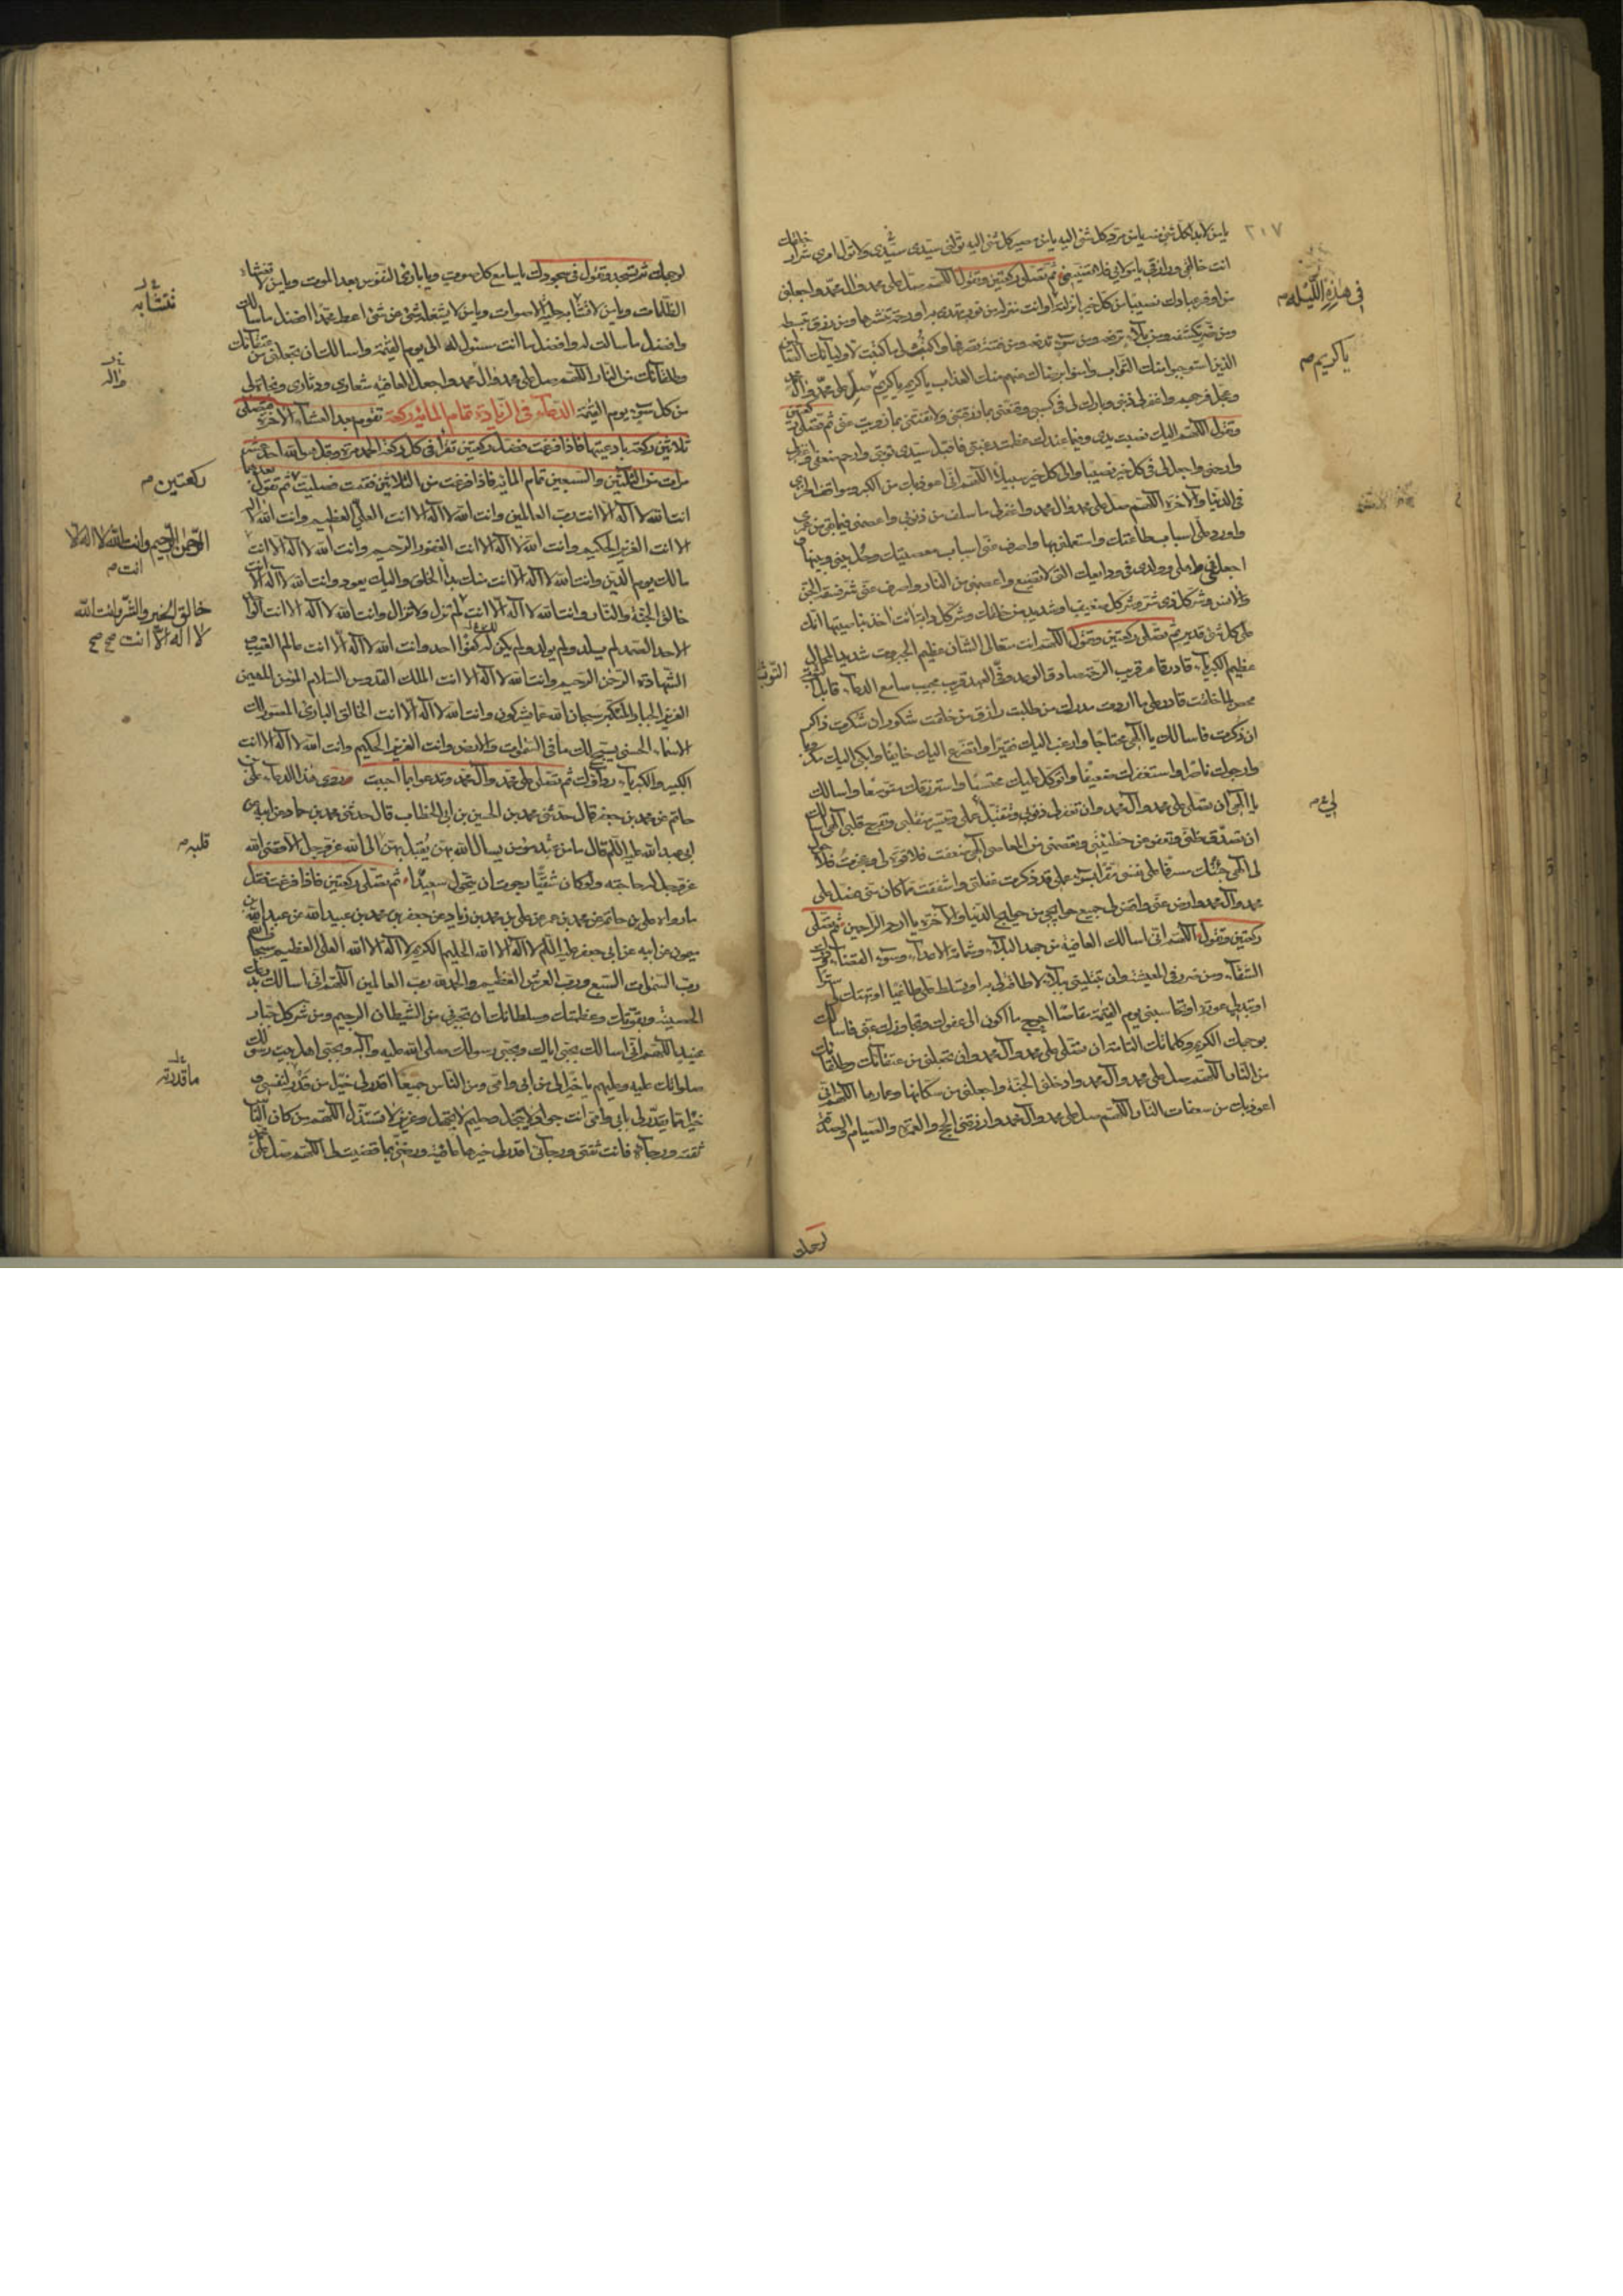 ٢١٧
يا من لا بدا كل شئ منه يا من مرد كل شئ اليه يا من مصير كل شئ اليه تولنى سيدى سيدى ولا تول امرى شرار خلقك
انت خالقى ورازقى يا مولاى فلا تضيعنى ثم تصلى ركعتين وتقول اللهم صل على محمد وال محمد واجعلنى
من اوفر عبادك نصيبا من كل خير انزلته او انت منزله من نور تهدى به او رحمة تنشرها ومن رزق تبسطه
ومن ضر تكشفه ومن بلاء ترفعه ومن سوء تدفعه ومن فتنة تصرفها واكتب لى ما كتبت لاوليائك الصالحين
الذين استوجبوا منك الثواب وامنوا برضاك عنهم منك العذاب يا كريم يا كريم صل على محمد وال محمد
وعجل فرجهم واغفر لى ذنبى وبارك لى فى كسبى وقنعنى بما رزقتنى ولا تفتنى بما زويت عنى ثم تصلى ركعتين
وتقول اللهم اليك نصبت يدى وفيما عندك عظمت رغبتى فاقبل سيدى توبتى وارحم ضعفى واغفر لى
وارحمنى واجعل لى فى كل خير نصيبا والى كل خير سبيلا اللهم انى اعوذ بك من الكبر ومواقف الخزى
فى الدنيا والاخرة اللهم صل على محمد وال محمد واغفر لى ما سلف من ذنوبى واعصمنى فيما بقى من عمرى
واورد على اسباب طاعتك واستعملنى بها واصرف عنى اسباب معصيتك وحل بينى وبينها
اجعلنى واهلى وولدى فى ودايعك التى لا تضيع واعصمنى من النار واصرف عنى شر فسقة الجن
والانس وشر كل ذى شر وشر كل ضعيف او شديد من خلقك وشر كل دابة انت اخذ بناصيتها انك
على كل شئ قدير ثم تصلى ركعتين وتقول اللهم انت متعالى الشان عظيم الجبروت شديد المحال
عظيم الكبرياء قادر قاهر قريب الرحمة صادق الوعد وفى العهد قريب مجيب سامع الدعاء قابل التوبة
محص لما خلقت قادر على ما اردت مدرك من طلبت رازق من خلقت شكور ان شكرت ذاكر
ان ذكرت فاسالك يا الهى محتاجا وارغب اليك فقيرا واتضرع اليك خايفا وابكى اليك مكروبا
وارجوك ناصرا واستغفرك ضعيفا واتوكل عليك محتسبا واسترزقك متوسعا واسالك
يا الهى ان تصلى على محمد وال محمد وان تغفر لى ذنوبى وتقبل عملى وتيسر منقلبى وتفرج قلبى الهى اسالك
ان تصدق ظنى وتعفو عن خطيئتى وتعصمنى من المعاصى الهى ضعفت فلا قوة لى وعجزت فلا حول
لى الهى جئتك مسرفا على نفسى مقرا بسوء عملى قد ذكرت غفلتى واشفقت مما كان منى فصل على
محمد وال محمد وارض عنى واقض لى جميع حوايجى من حوايج الدنيا والاخرة يا ارحم الراحمين ثم تصلى
ركعتين وتقول اللهم انى اسالك العافية من جهد البلاء وشماتة الاعداء وسوء القضاء ودرك
الشقاء ومن الضرر فى المعيشة وان تبتلينى ببلاء لا طاقة لى به او تسلط على طاغيا او تهتك لى سترا
او تبدى لى عورة او تحاسبنى يوم القيمة مقاصا احوج ما اكون الى عفوك وتجاوزك عنى فاسالك
بوجهك الكريم وكلماتك التامة ان تصلى على محمد وال محمد وان تجعلنى من عتقائك وطلقائك
من النار اللهم صل على محمد وال محمد وادخلنى الجنة واجعلنى من سكانها وعمارها اللهم انى
اعوذ بك من سفعات النار اللهم صل على محمد وال محمد وارزقنى الحج والعمرة والصيام والصدقة
لوجهك
فى هذه الليلة
يا كريم
التوبة
لى
لوجهك ثم تسجد وتقول فى سجودك يا سامع كل صوت ويا بارئ النفوس بعد الموت ويا من لا تغشاه
الظلمات ويا من لا تشابه عليه الاصوات ويا من لا يشغله شئ عن شئ اعط محمدا افضل ما سالك
وافضل ما سالت له وافضل ما انت مسئول له الى يوم القيمة واسالك ان تجعلنى من عتقائك
وطلقائك من النار اللهم صل على محمد وال محمد واجعل العافية شعارى ودثارى ونجاة لى
من كل سوء يوم القيمة الدعاء فى الزيادة تمام المائة ركعة تقوم بعد العشاء الاخرة فتصلى
ثلاثين ركعة بادعيتها فاذا فرغت فصل ركعتين تقرا فى كل ركعة الحمد مرة وقل هو الله احد عشر
مرات من الثلثين والسبعين تمام المائة فاذا فرغت من الثلاثين فقمت فصليت ثم تقول بعدهما
انت الله لا اله الا انت رب العالمين وانت الله لا اله الا انت العلى العظيم وانت الله لا اله
الا انت العزيز الحكيم وانت الله لا اله الا انت الغفور الرحيم وانت الله لا اله الا انت
مالك يوم الدين وانت الله لا اله الا انت منك بدأ الخلق واليك يعود وانت الله لا اله الا انت
خالق الجنة والنار وانت الله لا اله الا انت لم تزل ولا تزال وانت الله لا اله الا انت الواحد
الاحد الصمد لم يلد ولم يولد ولم يكن له كفوا احد وانت الله لا اله الا انت عالم الغيب
والشهادة الرحمن الرحيم وانت الله لا اله الا انت الملك القدوس السلام المؤمن المهيمن
العزيز الجبار المتكبر سبحان الله عما يشركون وانت الله لا اله الا انت الخالق البارئ المصور لك
الاسماء الحسنى يسبح لك ما فى السموات والارض وانت العزيز الحكيم وانت الله لا اله الا انت
الكبير والكبرياء رداؤك ثم تصلى على محمد وال محمد وتدعو بما احببت وروى هذا الدعاء على بن
حاتم عن محمد بن جعفر قال حدثنى محمد بن الحسين بن ابى الخطاب قال حدثنى محمد بن حماد عن ابيه عن
ابى عبد الله عليه السلم قال ما من عبد مؤمن يسال الله بهن يقبل بهن الى الله عز وجل الا قضى الله
عز وجل له حاجته ولو كان شقيا رجوت ان يحول سعيدا ثم تصلى ركعتين فاذا فرغت فقل
ما رواه على بن حاتم عن محمد بن عمر عن على بن محمد بن زياد عن جعفر بن محمد بن عبيد الله عن عبد الله بن
ميمون عن ابيه عن ابى جعفر عليه السلم لا اله الا الله الحليم الكريم لا اله الا الله العلى العظيم سبحان الله
رب السموات السبع ورب العرش العظيم والحمد لله رب العالمين اللهم انى اسالك بدرعك
الحصينة وبقوتك وعظمتك وسلطانك ان تجيرنى من الشيطان الرجيم ومن شر كل جبار
عنيد اللهم انى اسالك بحبى اياك وبحبى رسولك صلى الله عليه واله وبحبى اهل بيت رسولك
صلواتك عليه وعليهم يا خيرا لى من ابى وامى ومن الناس جميعا اقدر لى خيرا من قدرى لنفسى و
خيرا مما يقدر لى ابى وامى انت جواد لا يبخل وحليم لا يجهل وعزيز لا تستذل اللهم من كان الناس
ثقته ورجاءه فانت ثقتى ورجائى اقدر لى خيرها عافية ورضنى بما قضيت لى اللهم صل على محمد
تتشابه
واله
ركعتين
الرحمن الرحيم وانت الله لا اله الا
انت
خالق الخير والشر وانت الله
لا اله الا انت صح صح
قلبه
ما قدرته